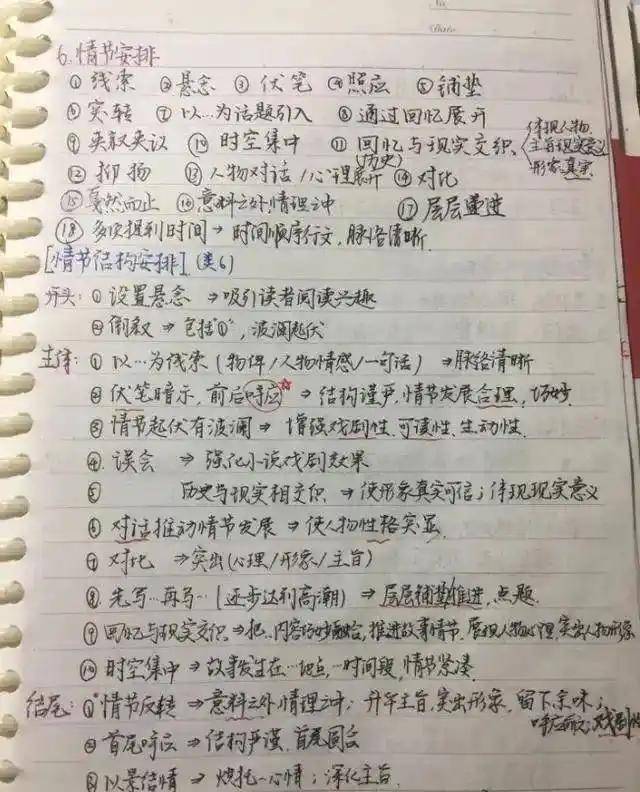 6.情节安排
①线索 ②悬念 ③伏笔 ④照应 ⑤铺垫
⑥突转 ⑦以…为话题引入 ⑧通过回忆展开
⑨夹叙夹议 ⑩时空集中 ⑪回忆与现实交织、体现人物
(历史) 主旨现实意义
形象真实
⑫抑扬 ⑬人物对话/心理展开 ⑭对比
⑮戛然而止 ⑯意料之外,情理之中 ⑰层层递进
⑱多次提到时间→时间顺序行文,脉络清晰.
[情节结构安排](类6)
开头:①设置悬念→吸引读者阅读兴趣
②倒叙→包括"①",波澜起伏
主体:①以…为线索(物件/人物情感/一句话)→脉络清晰
②伏笔暗示,前后呼应☆→结构谨严,情节发展合理,巧妙.
③情节起伏有波澜→增强戏剧性.可读性.生动性.
④误会→强化小说戏剧效果
⑤ 历史与现实相交织→使形象真实可信;体现现实意义
⑥对话推动情节发展→使人物性格突显.
⑦对比→突出(心理/形象/主旨)
⑧先写…再写…(逐步达到高潮)→层层铺垫推进,点题.
⑨回忆与现实交织→把…内容巧妙,推进故事情节,展现人物心理,突出人物形象
⑩时空集中→故事发生在…地点,一时间段,情节紧凑.
结尾:①情节反转→意料之外,情理之中;升华主旨,突出形象,留下余味;
呼应前文;戏剧性
②首尾呼应→结构严谨,首尾圆合
③以景结情→烘托…心情;深化主旨.